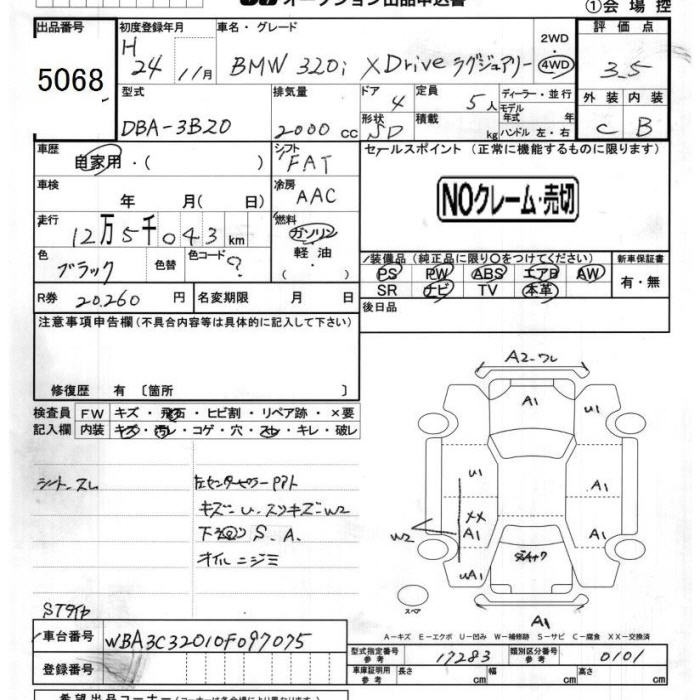 オークション出品申込書
①会場控
出品番号
5068
初度登録年月
H
24 11月
車名・グレード
BMW 320i XDrive ラグジュアリー
2WD
・
4WD
評価点
3.5
外装 内装
C B
型式
DBA-3B20
排気量
2000 CC
ドア
4
形状
SD
定員
5人
積載
kg
ディーラー・並行
モデル
年式 年
ハンドル 左・右
車歴
自家用・( )
シフト
FAT
車検
年 月( 日)
冷房
AAC
走行
12万5千043 km
燃料
ガソリン
軽油
・
( )
色
ブラック
色替
色コード
?
R券 20,260 円
名変期限 月 日
セールスポイント (正常に機能するものに限ります)
NOクレーム・売切
装備品(純正品に限り○をつけてください)
PS PW ABS エアB AW
SR ナビ TV 本革
新車保証書
有・無
後日品
注意事項申告欄(不具合内容等は具体的に記入して下さい)
修復歴 有 〔箇所 〕
検査員 FW キズ・飛石・ヒビ割・リペア跡・×要
記入欄 内装 キズ・汚レ・コゲ・穴・スレ・キレ・破レ
シート、スレ
キズ=U、スリキズ=W2
下廻り S、A、
オイルニジミ
A2、ワレ
A1
U1
U1
A1
XX
A1
A1
W2
UA1
A1
スペア
A-キズ E-エクボ U-凹み W-補修跡 S-サビ C-腐食 XX-交換済
車台番号 WBA3C32010F097075
登録番号
型式指定番号
参考
17283
類別区分番号
参考
0101
車庫証明用
参考
長さ cm
幅 cm
高さ cm
希望出品コーナー